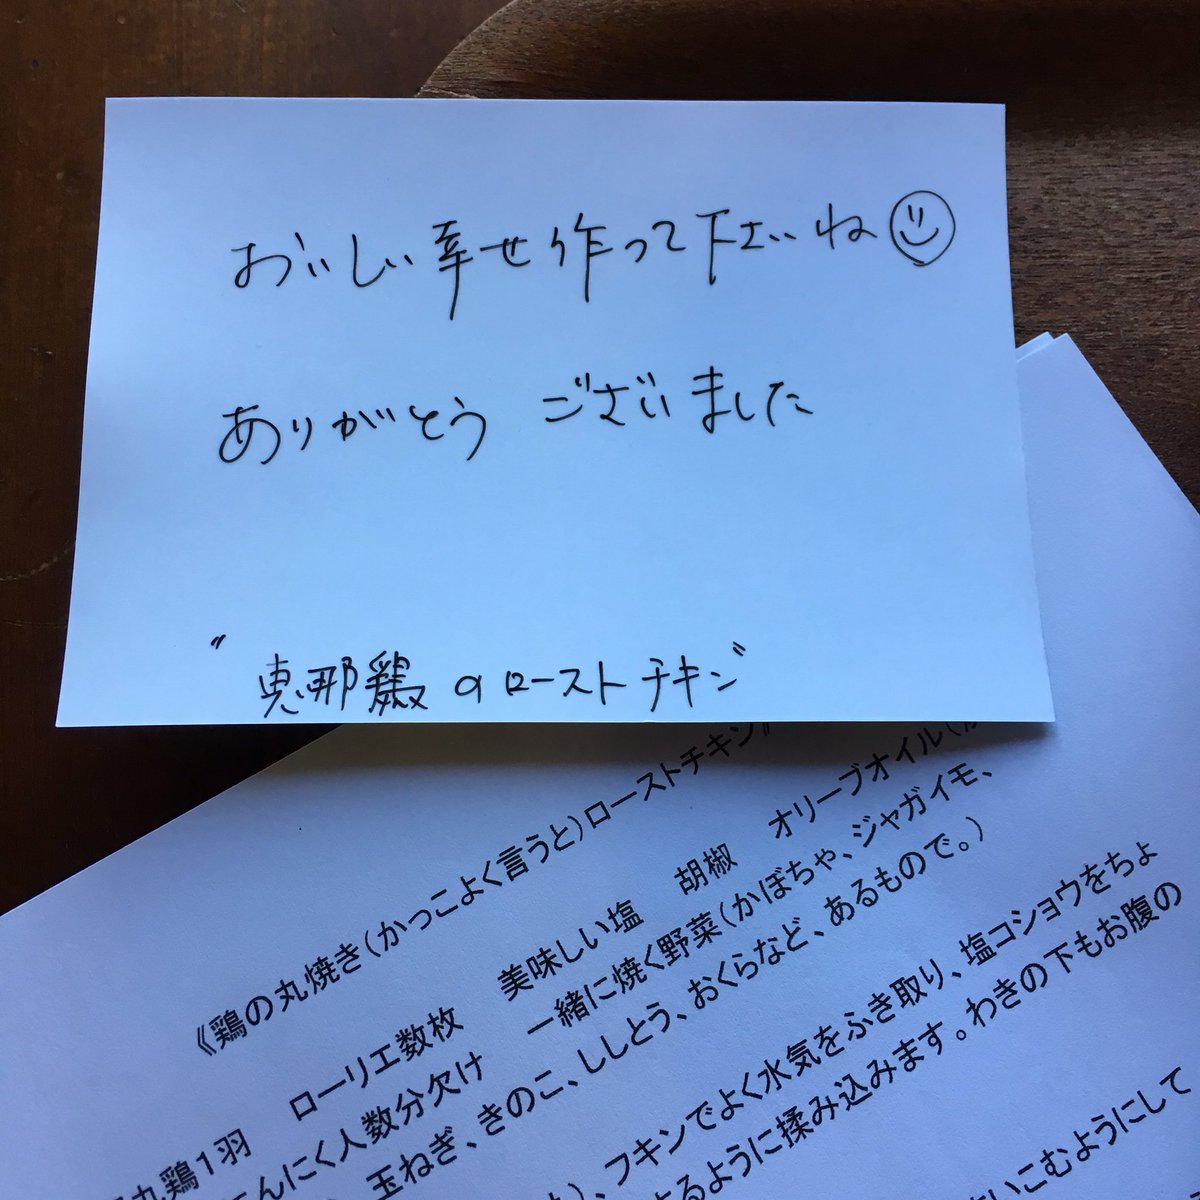 おいしい幸せ作って下さいね
ありがとう ございました
"恵那鶏のローストチキン"
《鶏の丸焼き(かっこよく言うと)ローストチキン》
丸鶏1羽 ローリエ数枚 美味しい塩 胡椒 オリーブオイル(
んにく人数分欠け 一緒に焼く野菜(かぼちゃ、ジャガイモ、
玉ねぎ、きのこ、ししとう、おくらなど、あるもので。)
)、フキンでよく水気をふき取り、塩コショウをちょ
るように揉み込みます。わきの下もお腹の
いこむようにして